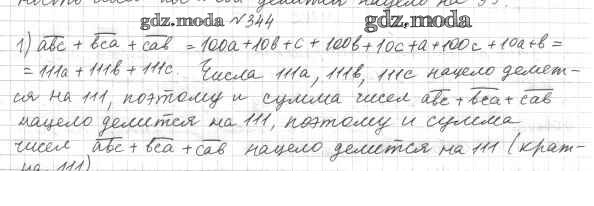 ность чисел
делится нацело на
gdz.moda №344 gdz.moda
1) a̅b̅c̅ + b̅c̅a̅ + c̅a̅b̅ = 100a+10b+c + 100b+10c+a+100c+10a+b =
= 111a + 111b + 111c. Числа 111a, 111b, 111c нацело делят-
ся на 111, поэтому и сумма чисел a̅b̅c̅ + b̅c̅a̅ + c̅a̅b̅
нацело делится на 111, поэтому и сумма
чисел a̅b̅c̅ + b̅c̅a̅ + c̅a̅b̅ нацело делится на 111 (крат-
на 111)